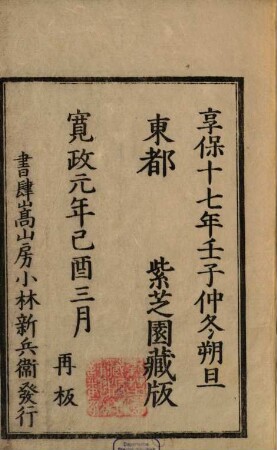 享保十七年壬子仲冬朔旦
東都　紫芝園藏版
寛政元年己酉三月　再板
書肆嵩山房小林新兵衞發行